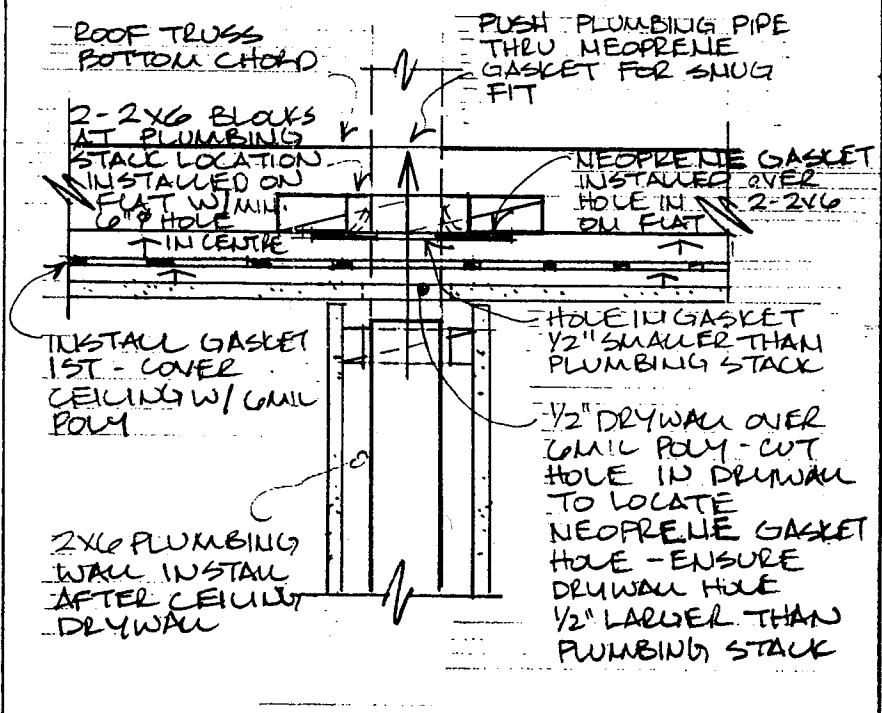 ROOF TRUSS
BOTTOM CHORD
PUSH PLUMBING PIPE
THRU NEOPRENE
GASKET FOR SNUG
FIT
2-2X6 BLOCKS
AT PLUMBING
STACK LOCATION
INSTALLED ON
FLAT W/MIN.
6"φ HOLE
IN CENTRE
NEOPRENE GASKET
INSTALLED OVER
HOLE IN 2-2X6
ON FLAT
INSTALL GASKET
1ST - COVER
CEILING W/ 6MIL
POLY
HOLE IN GASKET
1/2" SMALLER THAN
PLUMBING STACK
1/2" DRYWALL OVER
6MIL POLY - CUT
HOLE IN DRYWALL
TO LOCATE
NEOPRENE GASKET
HOLE - ENSURE
DRYWALL HOLE
1/2" LARGER THAN
PLUMBING STACK
2X6 PLUMBING
WALL INSTALL
AFTER CEILING
DRYWALL